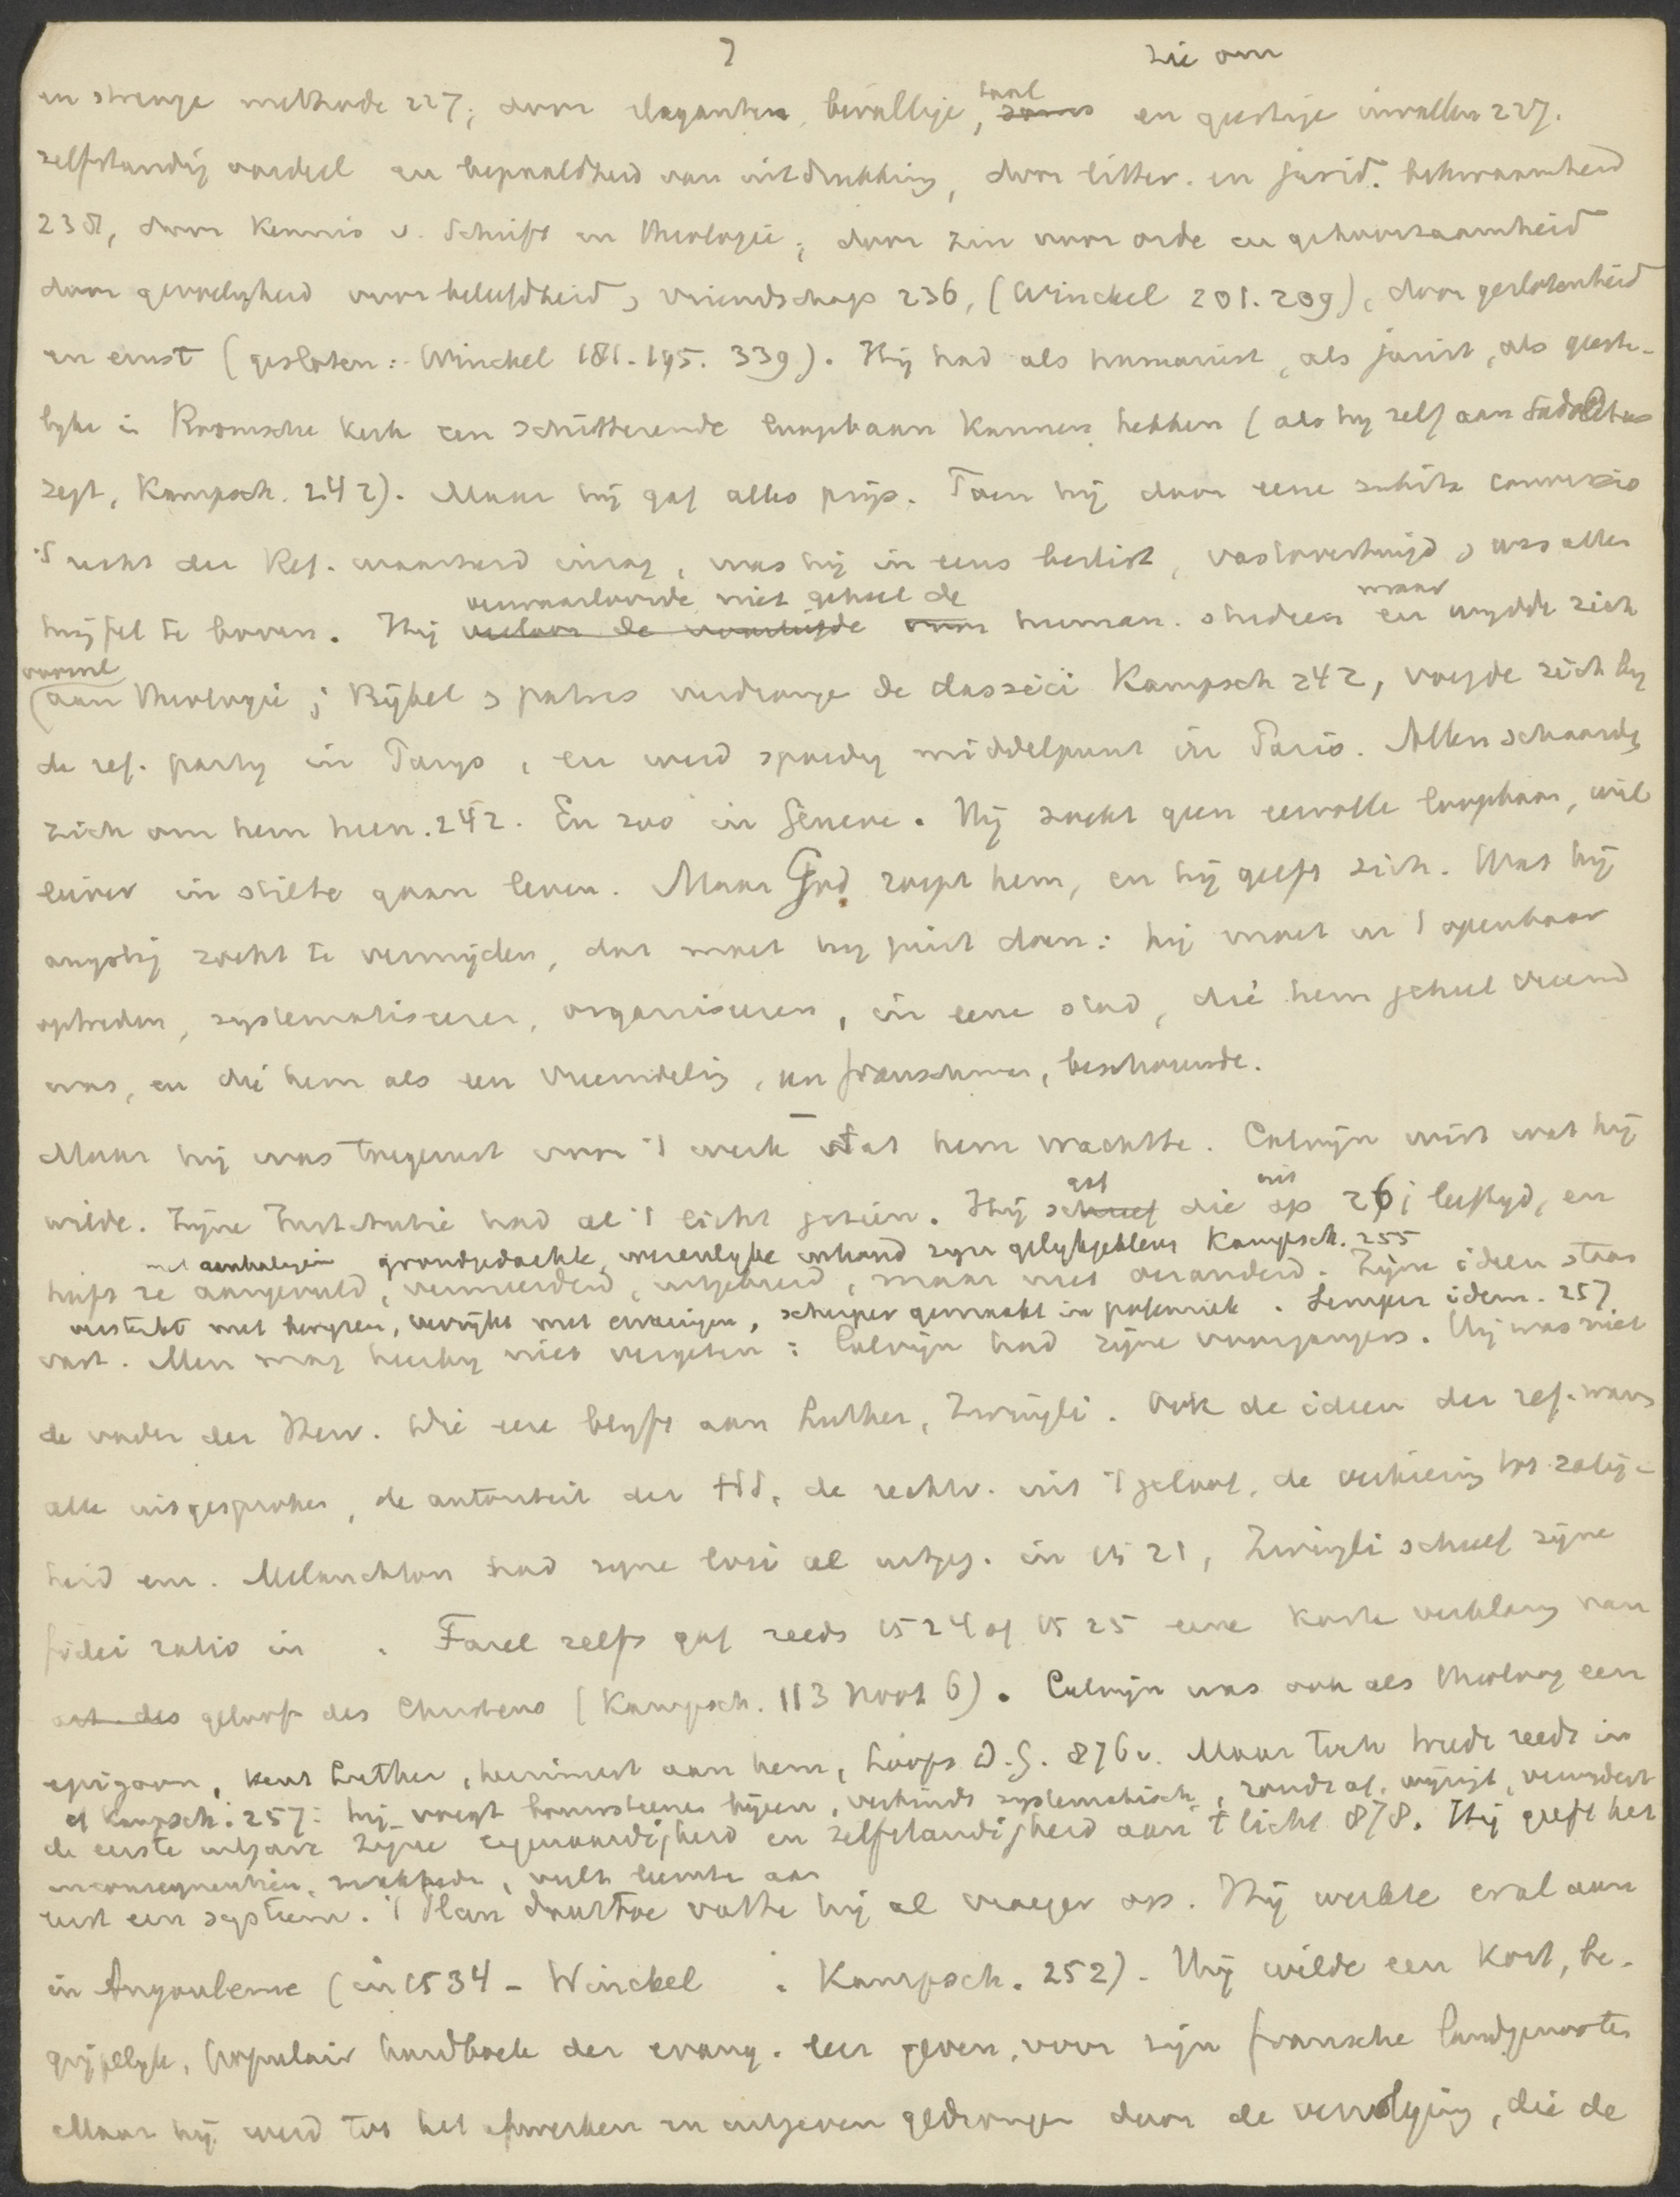 7 zie om
en strenge methode 227; door eleganten, bevallige, taal en geestige invallen 227.
zelfstandig oordeel en bepaaldheid van uitdrukking, door litter. en jurid. bekwaamheid
238, door kennis v. Schrift en theologie; door zin voor orde en gehoorzaamheid
door gevoeligheid voor beleefdheid, vriendschap 236, (Winckel 201. 209), door geslotenheid
en ernst (gesloten: Winckel 181. 195. 339). Hij had als humanist, als jurist, als geeste-
lyke in Roomsche kerk een schitterende loopbaan kunnen hebben (als hy zelf aan Sadoletus
zegt, Kampsch. 242). Maar hij gaf alles prijs. Toen hij door eene subita conversio
't recht der Ref. waarheid inzag, was hij in eens beslist, vastovertuigd, was allen
twijfel te boven. Hij verwaarloosde niet geheel de human. studieen maar wydde zich
vooral
aan theologie; Bijbel, patres verdrongen de classici Kampsch 242, voegde zich by
de ref. party in Parys, en werd spoedig middelpunt in Paris. Allen schaarden
zich om hem heen. 242. En zoo in Geneve. Hij zoekt geen eervolle loopbaan, wil
liever in stilte gaan leven. Maar God roept hem, en hij geeft zich. Wat hij
angstig zocht te vermijden, dat moet hy juist doen: hij moet in 't openbaar
optreden, systematiseeren, organiseeren, in eene stad, die hem geheel vreemd
was, en die hem als een vreemdeling, een franschman, beschouwde.
Maar hij was toegerust voor 't werk dat hem wachtte. Calvijn wist wat hij
wilde. Zijne Institutie had al 't licht gezien. Hij gaf die uit op 26j leeftyd, en
met aanhalingen grondgedachte, wezenlyke inhoud zyn gelykgebleven Kampsch. 255
heeft ze aangevuld, vermeerderd, uitgebreid, maar niet veranderd. Zijne ideen staan
versterkt met bewyzen, verrijkt met ervaringen, scherper gemaakt in polemiek. Semper idem. 257
vast. Men mag hierby niet vergeten: Calvijn had zijne voorgangers. Hij was niet
de vader der Herv. Die eere blyft aan Luther, Zwingli. Ook de ideen der ref. waren
alle uitgesproken, de autoriteit der HS, de rechtv. uit 't geloof, de verkiezing tot zalig-
heid enz. Melanchton had zyne loci al uitgeg. in 1521, Zwingli schreef zijne
fidei ratio in . Farel zelfs gaf reeds 1524 of 1525 eene korte verklaring van
geloof des Christens (Kampsch. 113 noot 6). Calvijn was ook als theoloog een
epigoon, kent Luther, herinnert aan hem, Loofs D.G. 876v. Maar toch treedt reeds in
cf Kampsch. 257: hij voegt bouwsteenen bijeen, verbindt systematisch, rondt af, wijzigt, verwydert
de eerste uitgave zijne eigenaardigheid en zelfstandigheid aan 't licht 878. Hij geeft het
inconsequentien, , vult leemte aan
eerst een systeem. 't Plan daartoe vatte hij al vroeger op. Hij werkte er al aan
in Angouleme (in 1534 - Winckel . Kampsch. 252). Hij wilde een kort, be-
grijpelyk, populair handboek der evang. leer geven, voor zijn fransche landgenooten
Maar hij werd tot het afwerken en uitgeven gedrongen door de vervolging, die de